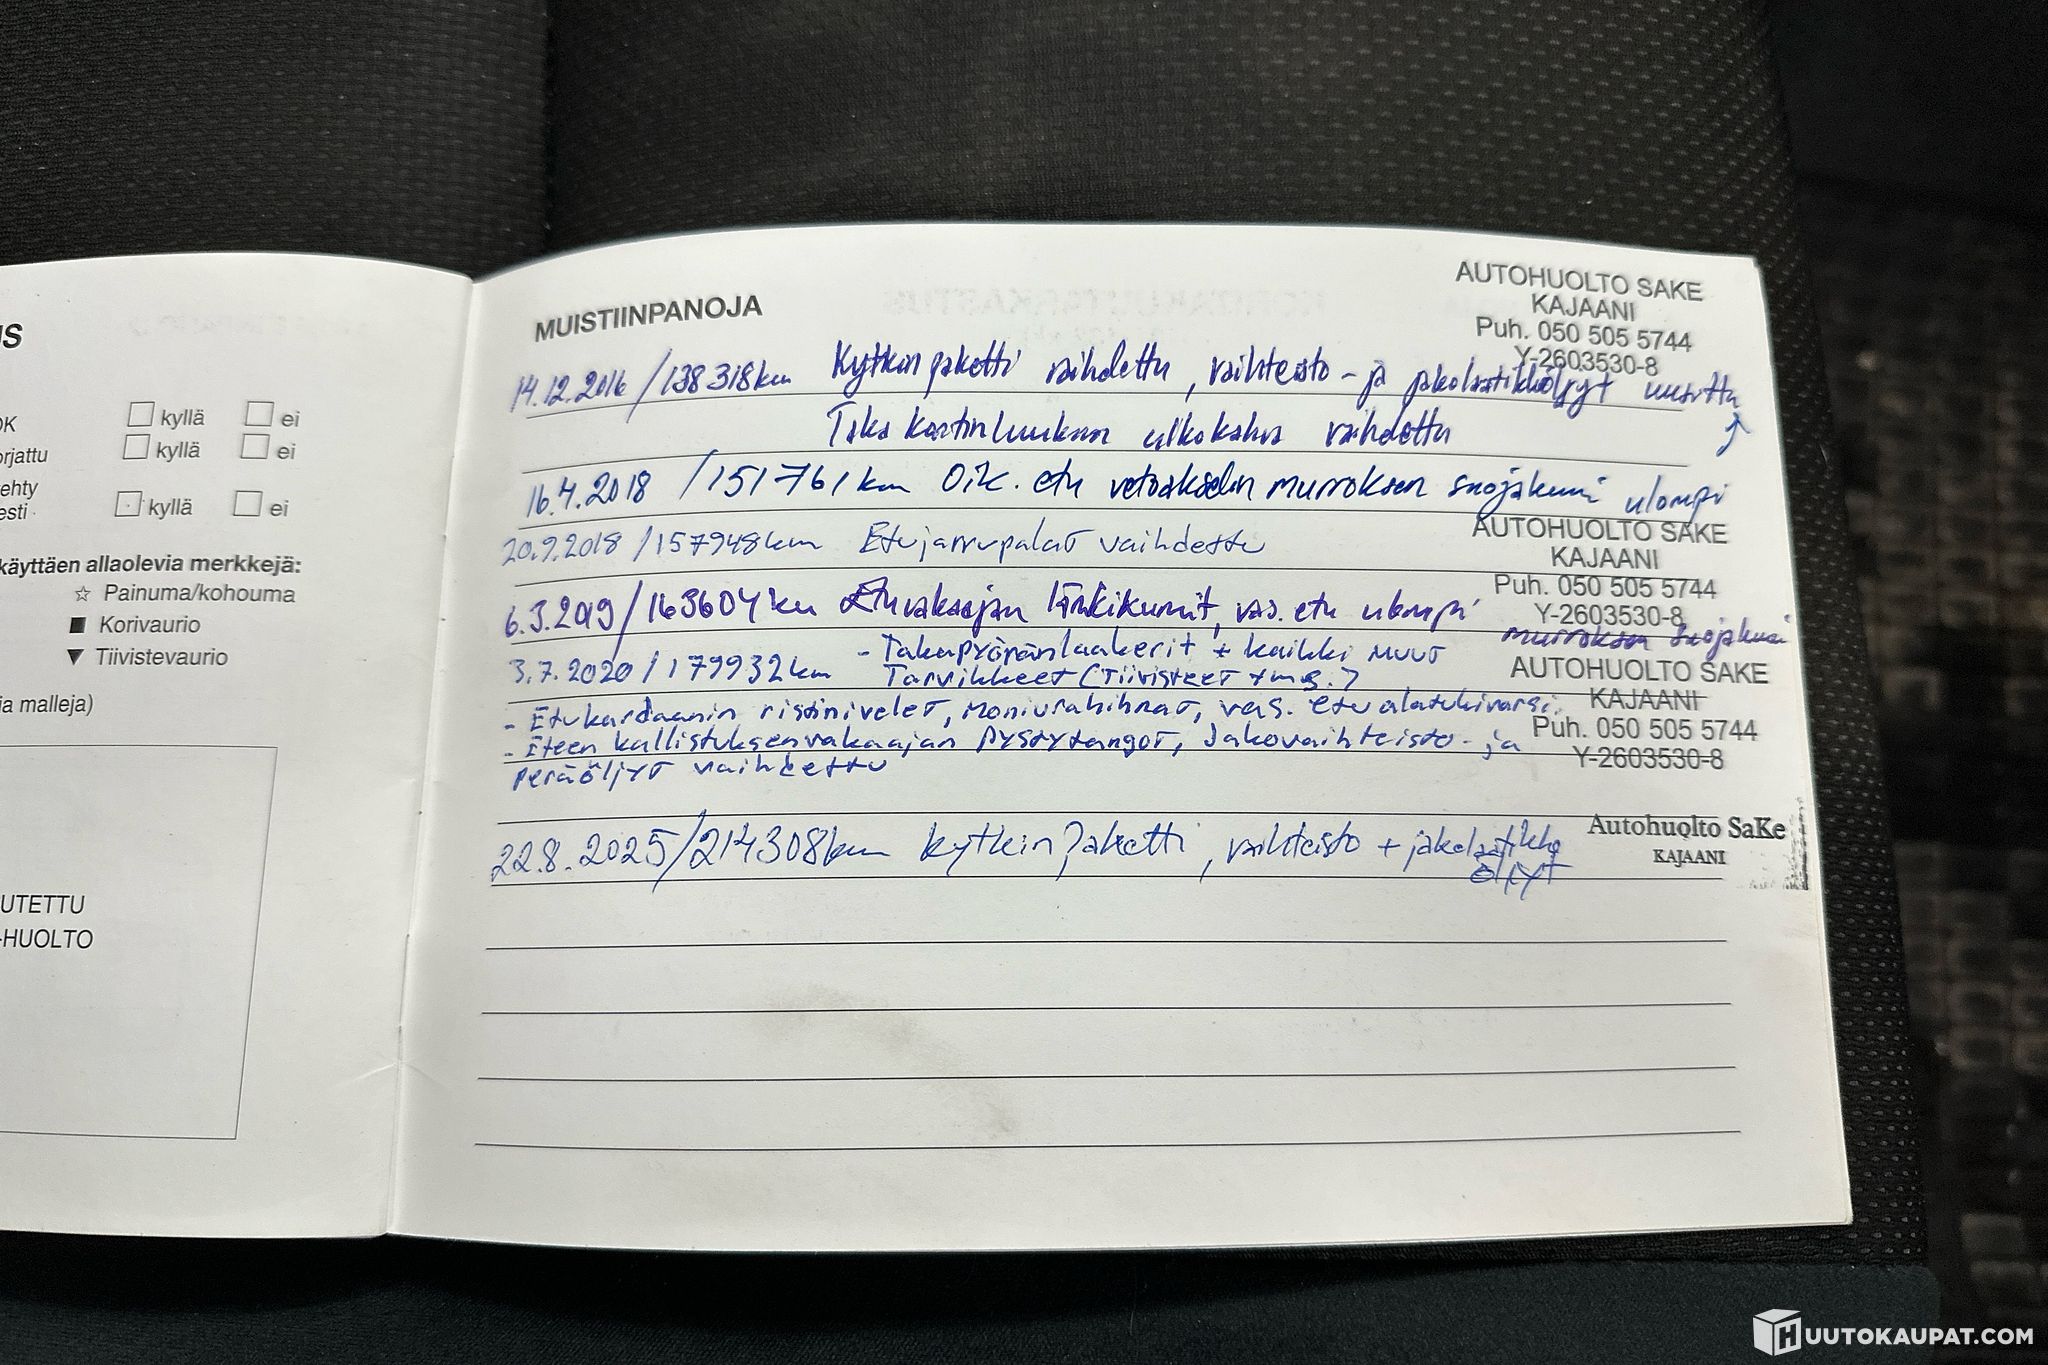 US
OK
kyllä ei
orjattu
kyllä ei
ehty
esti
kyllä ei
käyttäen allaolevia merkkejä:
☆ Painuma/kohouma
■ Korivaurio
▼ Tiivistevaurio
ia malleja)
UTETTU
-HUOLTO
MUISTIINPANOJA
AUTOHUOLTO SAKE
KAJAANI
Puh. 050 505 5744
Y-2603530-8
14.12.2016 / 138318km Kytkinpaketti vaihdettu, vaihteisto- ja jakolaatikkoöljyt uusittu
Taka kontinluukun ulkokahva vaihdettu
16.4.2018 / 151761km Oik. etu vetoakselin murroksen suojakumi ulompi
AUTOHUOLTO SAKE
KAJAANI
Puh. 050 505 5744
Y-2603530-8
20.9.2018 / 157948km Etujarrupalat vaihdettu
6.3.2019 / 163604km Etuvakaajan tänkikumit, vas. etu ulompi
murroksen suojakumi
AUTOHUOLTO SAKE
KAJAANI
Puh. 050 505 5744
Y-2603530-8
3.7.2020 / 179932km - Takapyöränlaakerit + kaikki muut
Tarvikkeet (Tiivisteet yms.)
- Etukardaanin ristinivelet, moniurahihnat, vas. etu alatukivarsi
- Eteen kallistuksenvakaajan pystytangot, Jakovaihteisto- ja
peräöljyt vaihdettu
22.8.2025 / 214308km kytkinpaketti, vaihteisto + jakolaatikko
öljyt
Autohuolto SaKe
KAJAANI
HUUTOKAUPAT.COM